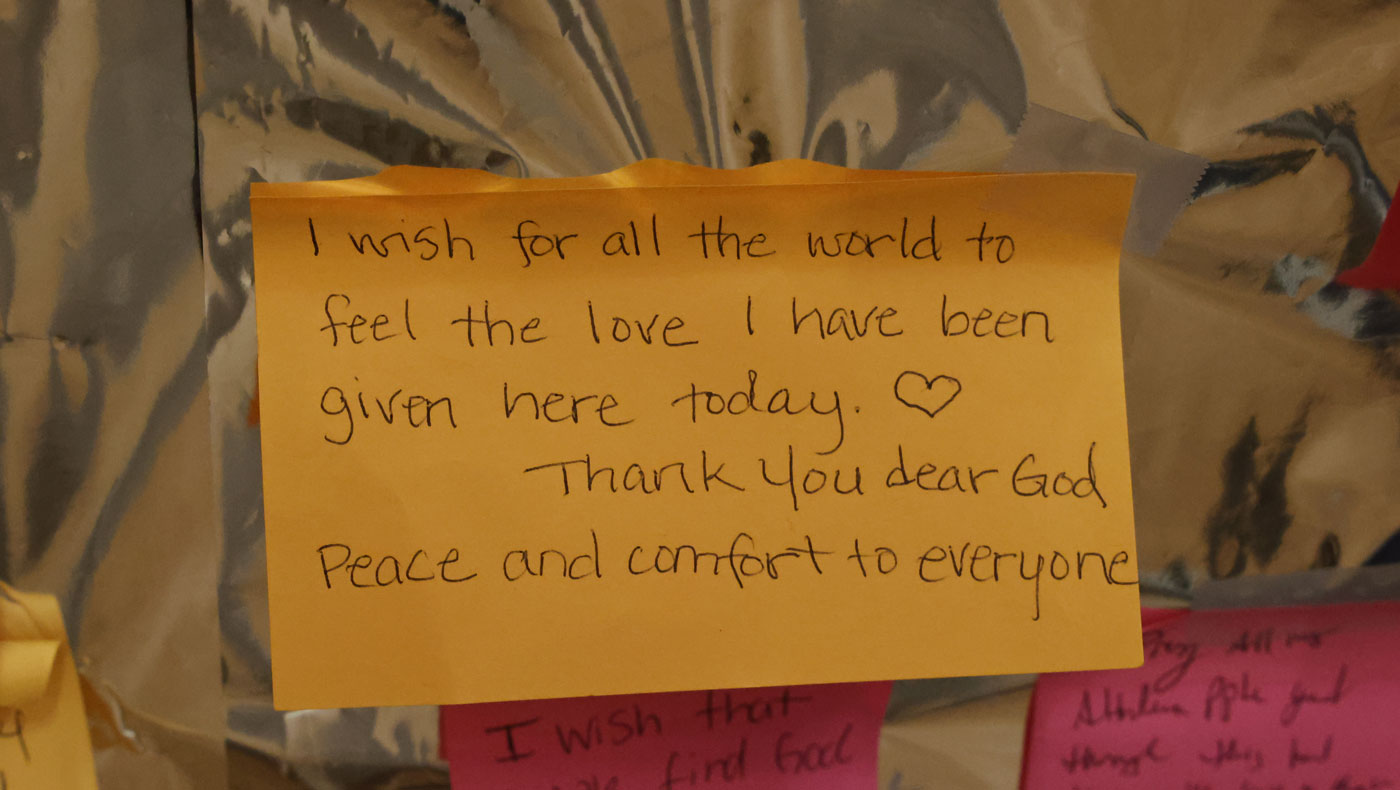 I wish for all the world to
feel the love I have been
given here today. ♡
Thank You dear God
Peace and comfort to everyone
I wish that
find God